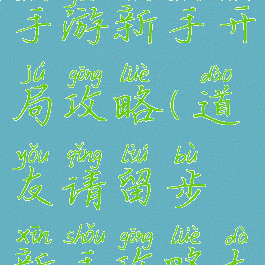 手游新手开
jú gōng lüè dào
局攻略(道
yǒu qǐng liú bù
友请留步
xīn shǒu gōng lüè dà
新手攻略大